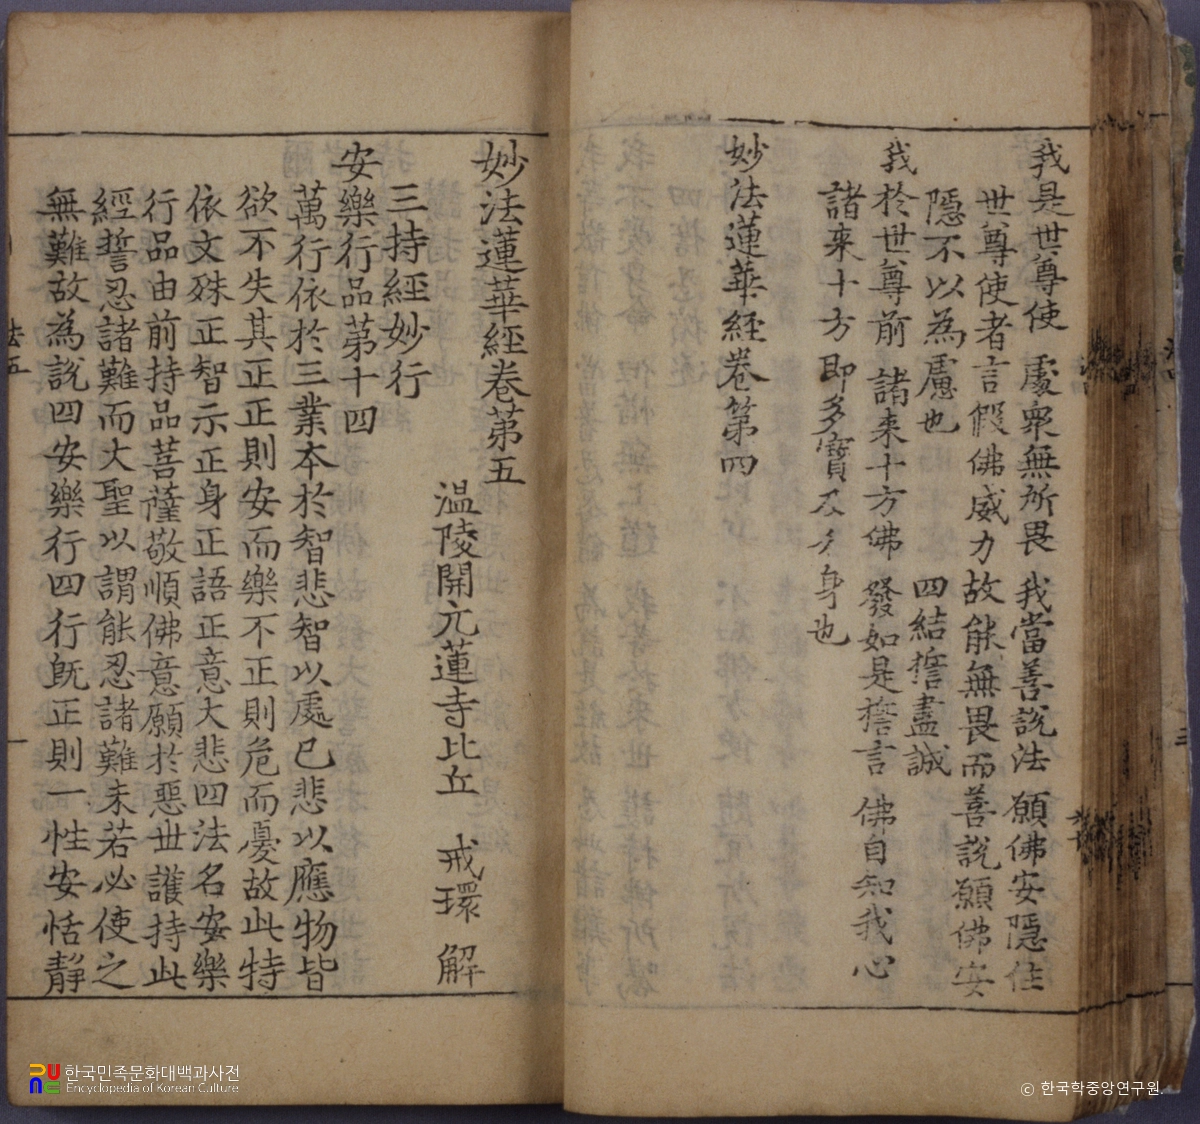 我是世尊使 處衆無所畏 我當善說法 願佛安隱住
世尊使者言假佛威力故能無畏而善說願佛安
隱不以為慮也 四結擔盡誠
我於世尊前 諸来十方佛 發如是擔言 佛自知我心
諸来十方即多寶及分身也
妙法蓮華経卷第四
妙法蓮華經卷苐五
温陵開元蓮寺比丘 戒環 解
三持經妙行
安樂行品苐十四
萬行依於三業本於智悲智以處已悲以應物皆
欲不失其正正則安而樂不正則危而憂故此特
依文殊正智示正身正語正意大悲四法名安樂
行品由前持品菩薩敬順佛意願於惡世護持此
經誓忍諸難而大聖以謂能忍諸難未若必使之
無難故為說四安樂行四行旣正則一性安恬靜
法五
一
한국민족문화대백과사전
Encyclopedia of Korean Culture
© 한국학중앙연구원.